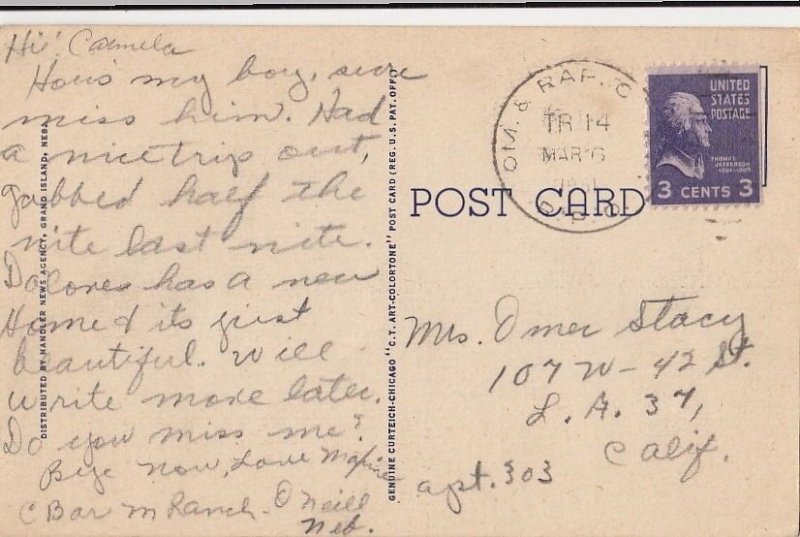 Hi! Carmela
How's my boy, sure
miss him. Had
a nice trip out,
gabbed half the
nite last nite.
Dolores has a new
Home & its just
beautiful. Will
write more later.
Do you miss me?
Bye now, Love Maxine
C Bar M Ranch. O'Neill
Neb.
DISTRIBUTED BY HANDLER NEWS AGENCY, GRAND ISLAND, NEBR.
GENUINE CURTEICH-CHICAGO "C.T. ART-COLORTONE" POST CARD (REG. U.S. PAT. OFF.)
OM. & RAP. C
TR 14
MAR 6
R.P.O.
UNITED
STATES
POSTAGE
THOMAS
JEFFERSON
3 CENTS 3
POST CARD
Mrs. Omer Stacy
107 W - 42 St.
L.A. 37,
Calif.
apt. 303